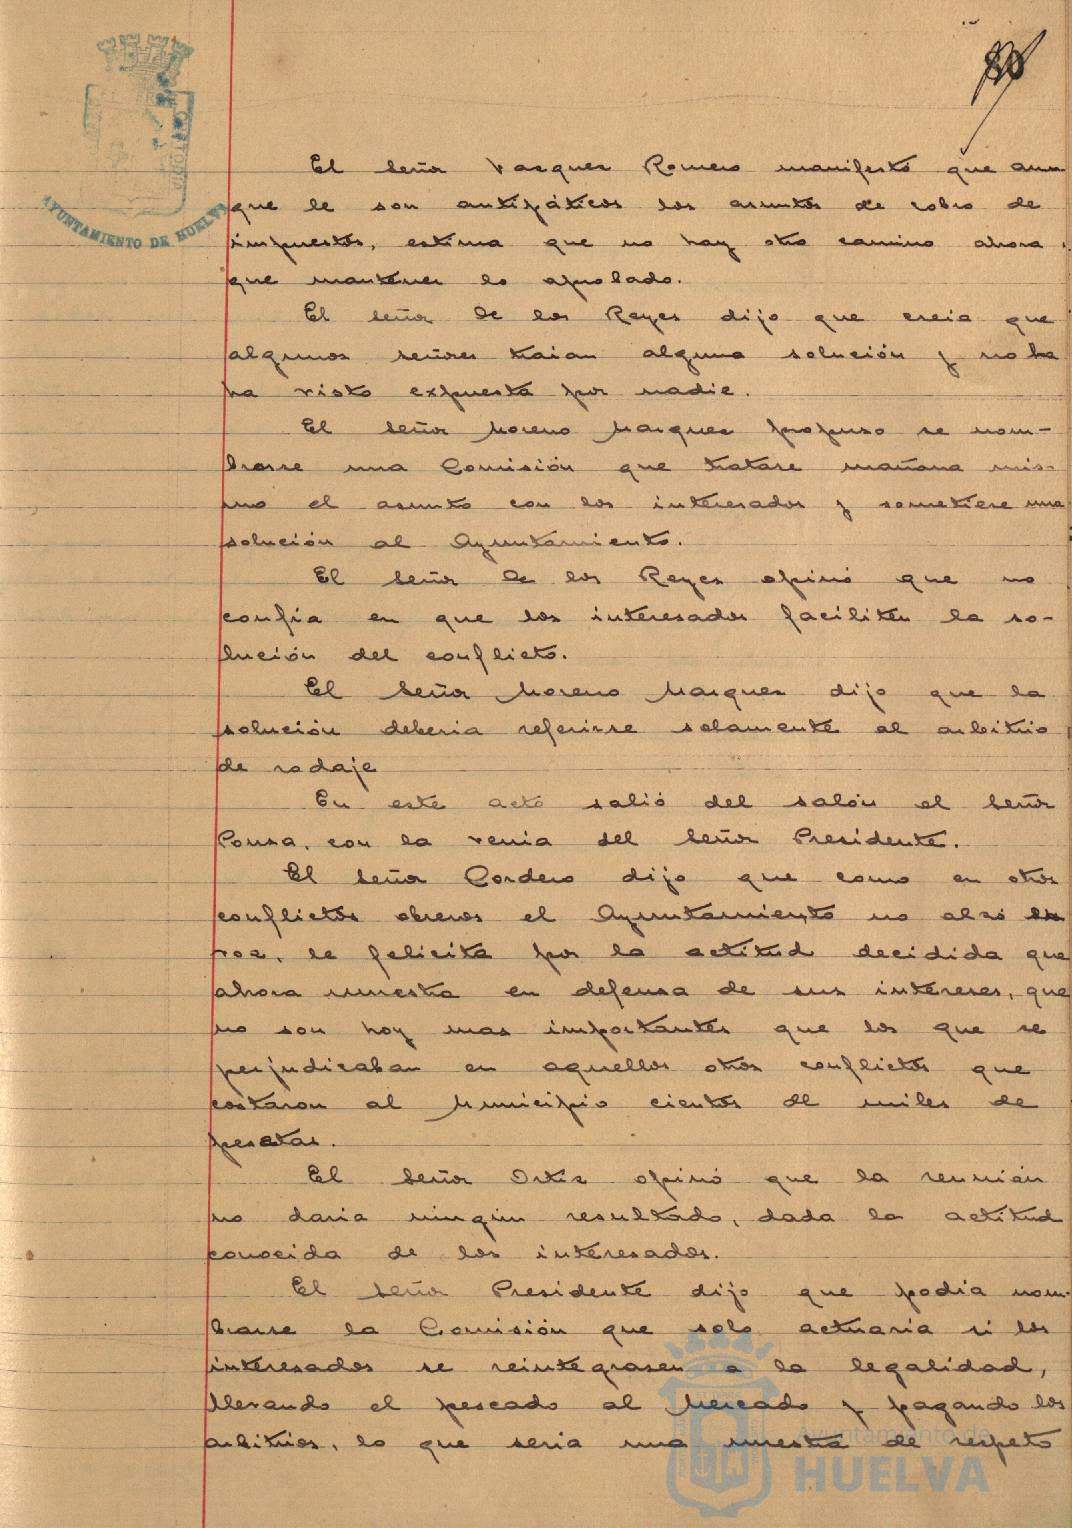 El Señor Vazquez Romero manifestó que aun
que le son antipáticos los asuntos de cobro de
impuestos, estima que no hay otro camino ahora
que mantener lo aprobado.
El Señor de los Reyes dijo que creia que
algunos señores traian alguna solución y no la
ha visto expuesta por nadie.
El Señor Moreno Marquez propuso se nom-
brase una Comisión que tratase mañana mis-
mo el asunto con los interesados y sometiese una
solución al Ayuntamiento.
El Señor de los Reyes opinó que no
confia en que los interesados faciliten la so-
lución del conflicto.
El Señor Moreno Marquez dijo que la
solución deberia referirse solamente al arbitrio
de rodaje
En este acto salió del salón el Señor
Ponza, con la venia del Señor Presidente.
El Señor Cordero dijo que como en otros
conflictos obreros el Ayuntamiento no alzó la
voz, le felicita por la actitud decidida que
ahora muestra en defensa de sus intereses, que
no son hoy mas importantes que los que se
perjudicaban en aquellos otros conflictos que
costaron al Municipio cientos de miles de
pesetas.
El Señor Ortiz opinó que la reunión
no daria ningún resultado, dada la actitud
conocida de los interesados.
El Señor Presidente dijo que podia nom-
brarse la Comisión que solo actuaria si los
interesados se reintegrasen a la legalidad,
llevando el pescado al Mercado y pagando los
arbitrios, lo que seria una muestra de respeto
AYUNTAMIENTO DE HUELVA
Ayuntamiento de
HUELVA